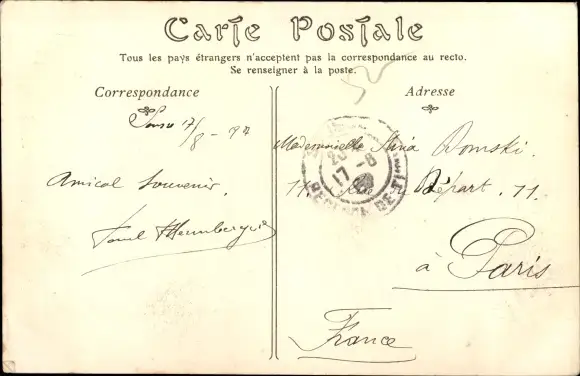 Carte Postale
Tous les pays étrangers n'acceptent pas la correspondance au recto.
Se renseigner à la poste.
Correspondance
Adresse
17/8 - 
Amical souvenir.
Paul
Mademoiselle Romski.
11. Rue du Départ. 11.
à Paris
France
17-8